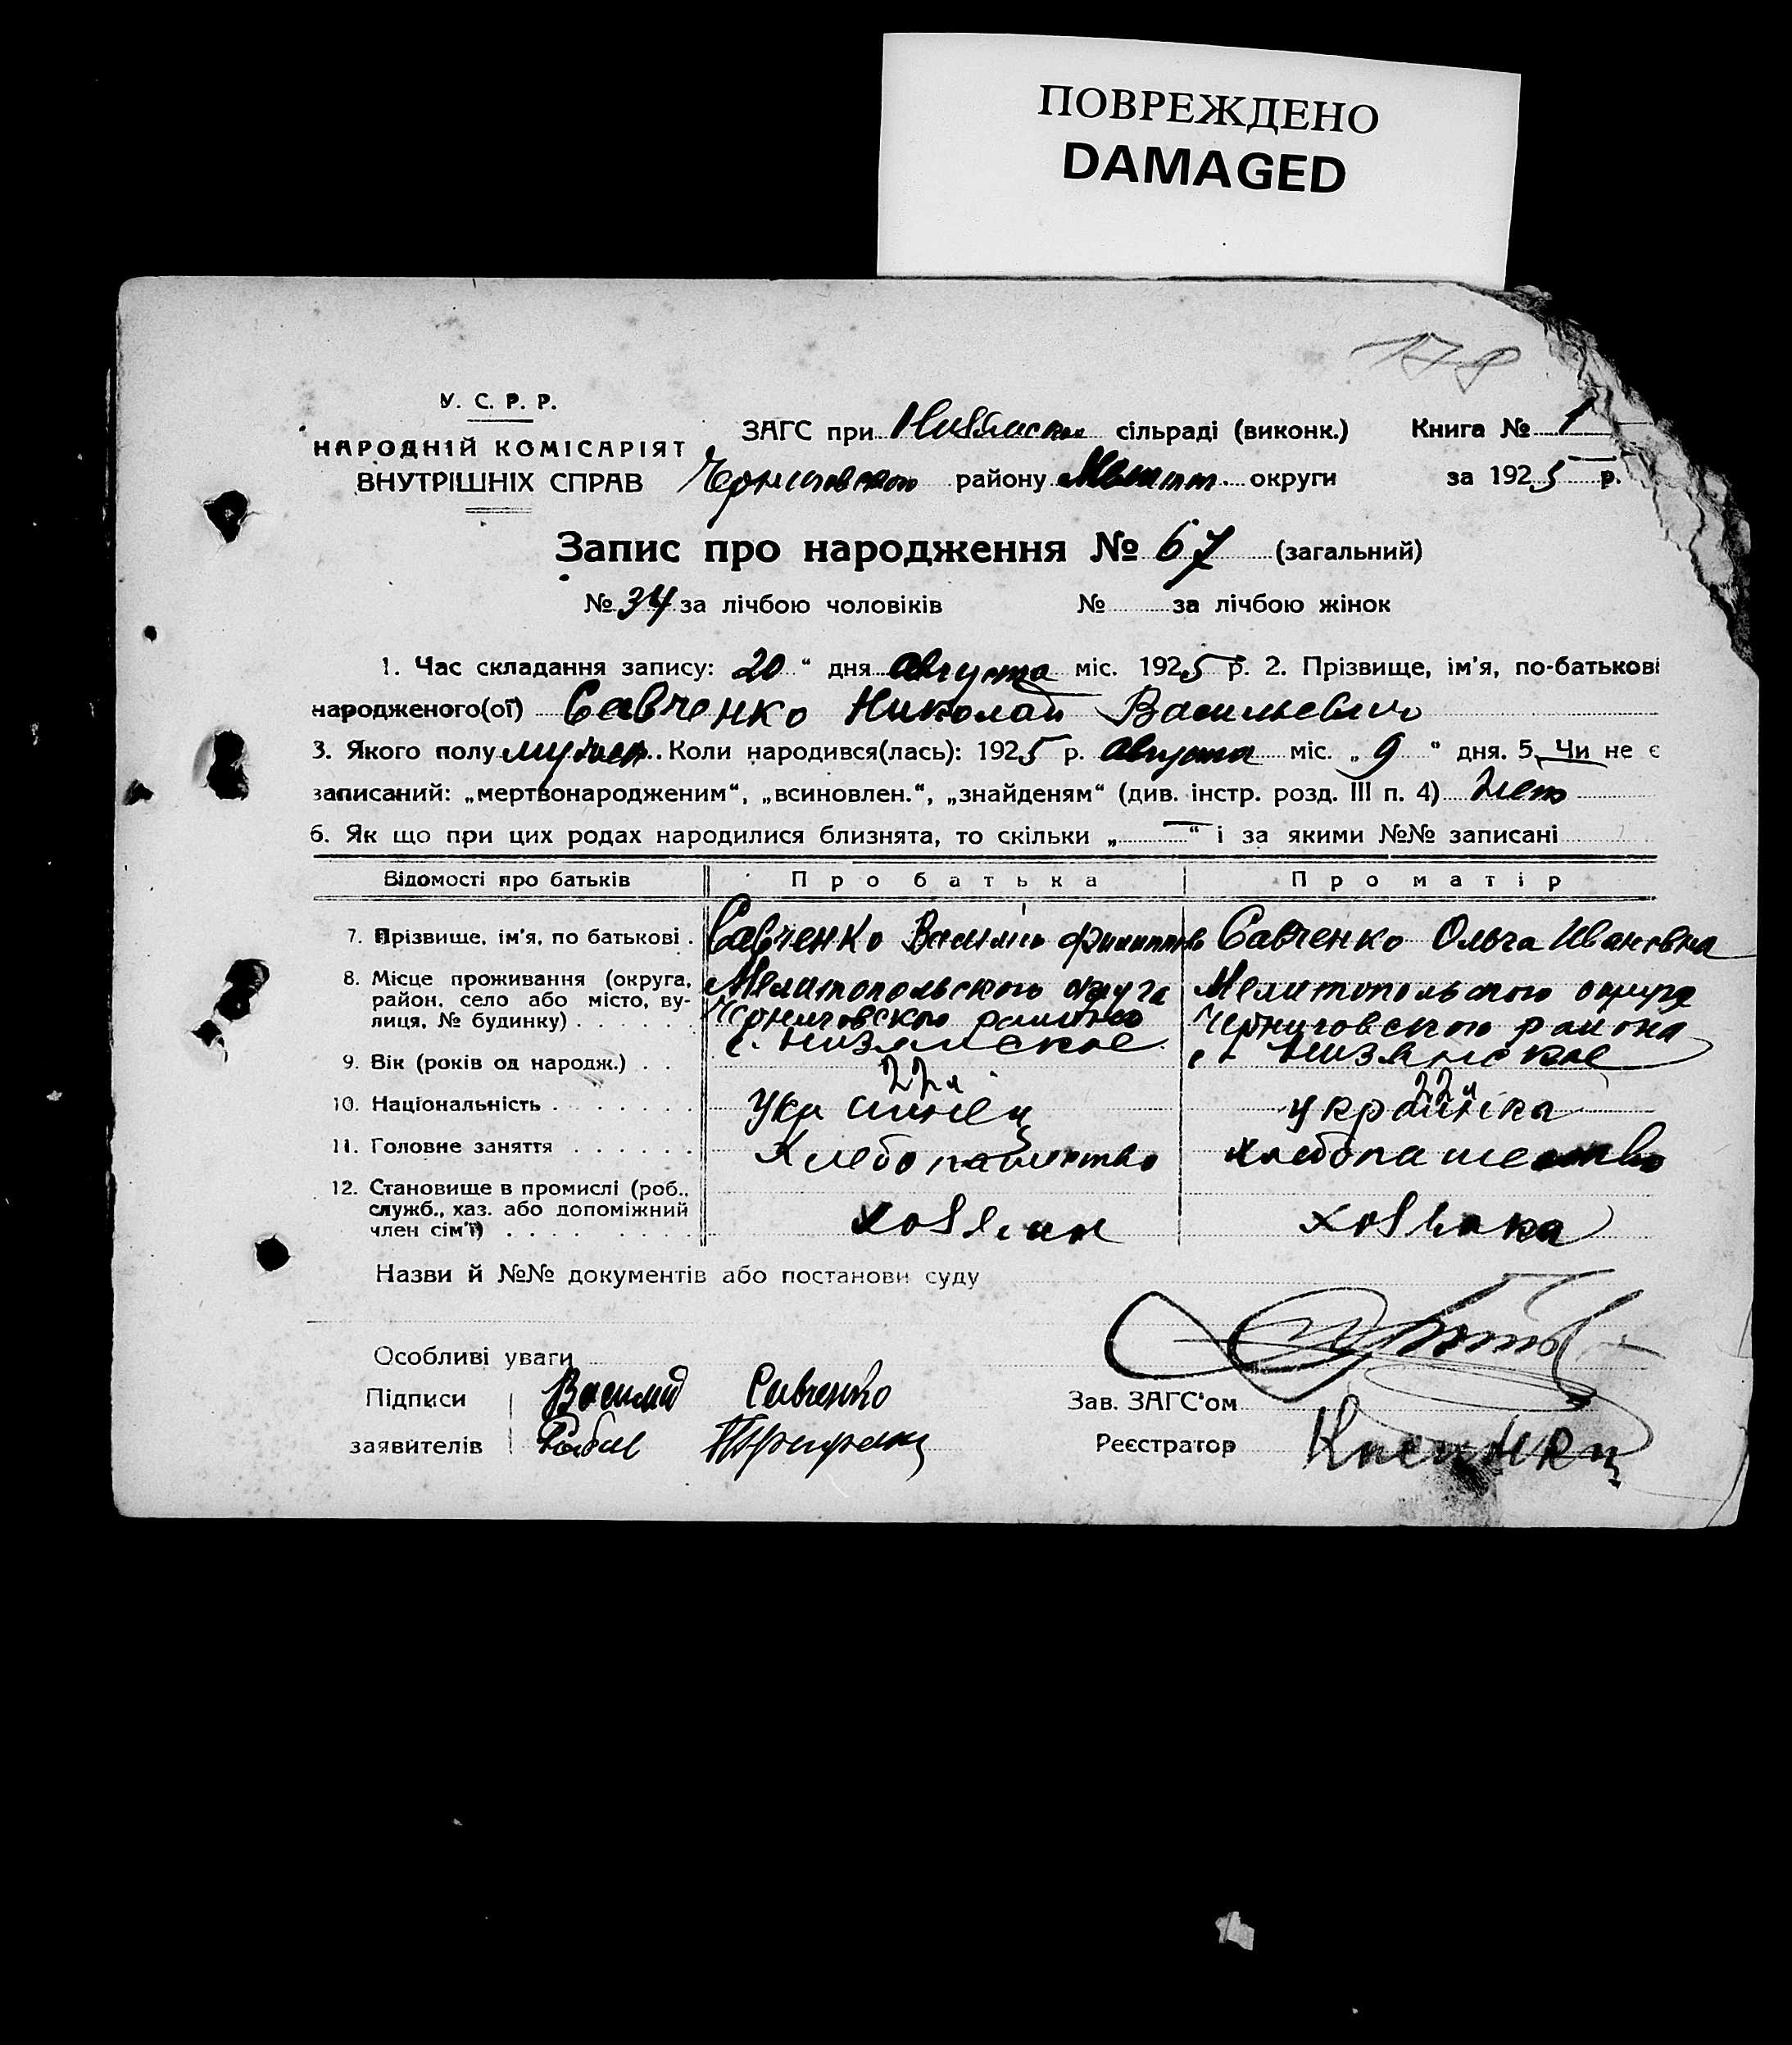 ПОВРЕЖДЕНО
DAMAGED
178
У. С. Р. Р.
НАРОДНІЙ КОМІСАРІЯТ
ВНУТРІШНІХ СПРАВ
ЗАГС при сільраді (виконк.) Книга № 1
Черниговского району Мелитоп. округи за 1925 р.
Запис про народження № 67 (загальний)
№ 34 за лічбою чоловіків № за лічбою жінок
1. Час складання запису: 20 “ дня Августа міс. 1925 р. 2. Прізвище, ім’я, по-батькові
народженого(ої) Савченко Николай Васильевич
3. Якого полу мужск. Коли народився(лась): 1925 р. Августа міс. „ 9 “ дня. 5. Чи не є
записаний: „мертвонародженим“, „всиновлен.“, „знайденям“ (див. інстр. розд. III п. 4) Нет
6. Як що при цих родах народилися близнята, то скільки „ — “ і за якими №№ записані
Відомості про батьків Про батька Про матір
7. Прізвище, ім’я, по батькові . Савченко Василий Филиппов Савченко Ольга Ивановна
8. Місце проживання (округа, район, село або місто, вулиця, № будинку) . . . . . .
Мелитопольского округа Мелитопольского округа
Черниговского района Черниговского района
с. Низянское с. Низянское
9. Вік (років од народж.) . . 22 л 22 л
10. Національність . . . . . . . Украинец украінка
11. Головне заняття . . . . . . Хлебопашество хлебопашество
12. Становище в промислі (роб., служб., хаз. або допоміжний член сім’ї) . . . . . . . . хозяин хозяйка
Назви й №№ документів або постанови суду
Особливі уваги
Підписи Василий Савченко Зав. ЗАГС‘ом
заявителів Реєстратор